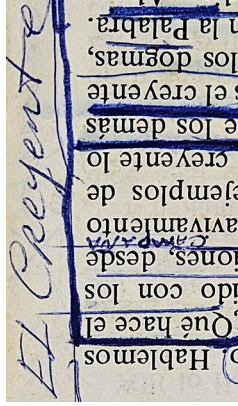 o. Hablemos
Qué hace el
ido con los
iones, desde
CAMPAÑA
avivamiento
ejemplos de
creyente lo
e los demás
el creyente
los dogmas,
la Palabra.
El Creyente